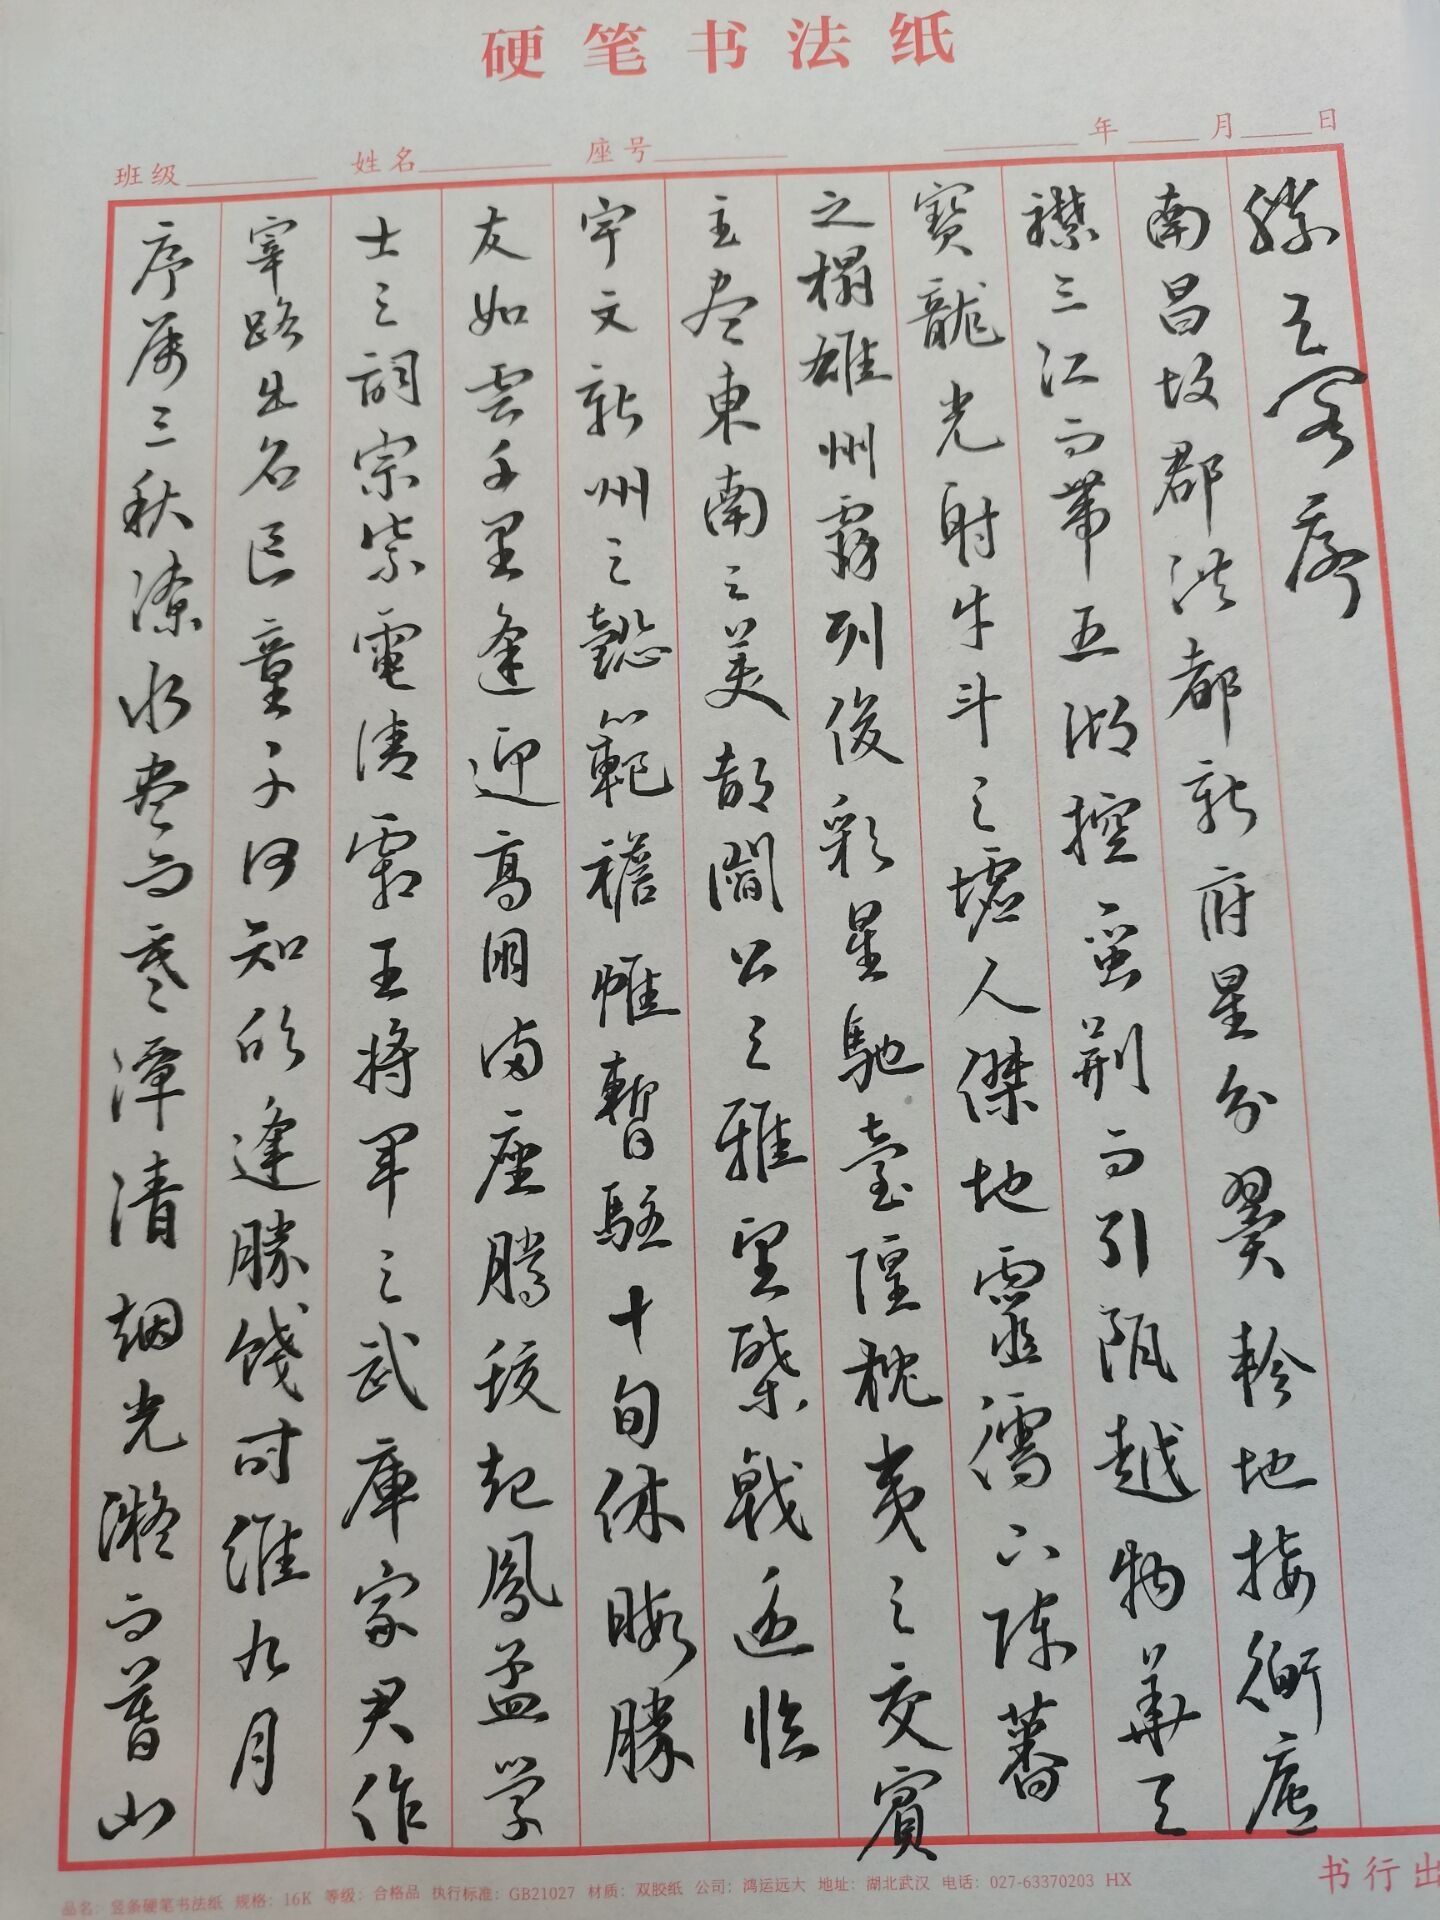 硬笔书法纸
班级 姓名 座号 年 月 日
滕王阁序
南昌故郡洪都新府星分翼軫地接衡庐
襟三江而带五湖控蛮荆而引瓯越物华天
寶龍光射牛斗之墟人傑地靈孺下陈蕃
之榻雄州霧列俊彩星馳臺隍枕夷之交賓
主尽東南之美都閻公之雅望棨戟遥临
宇文新州之懿範襜帷暫駐十旬休暇勝
友如雲千里逢迎高朋满座腾蛟起鳳孟学
士之詞宗紫電清霜王将军之武庫家君作
宰路出名区童子何知躬逢勝餞时維九月
序属三秋潦水尽而寒潭清烟光凝而暮山
书行出
品名：竖条硬笔书法纸 规格：16K 等级：合格品 执行标准：GB21027 材质：双胶纸 公司：鸿运远大 地址：湖北武汉 电话：027-63370203 HX